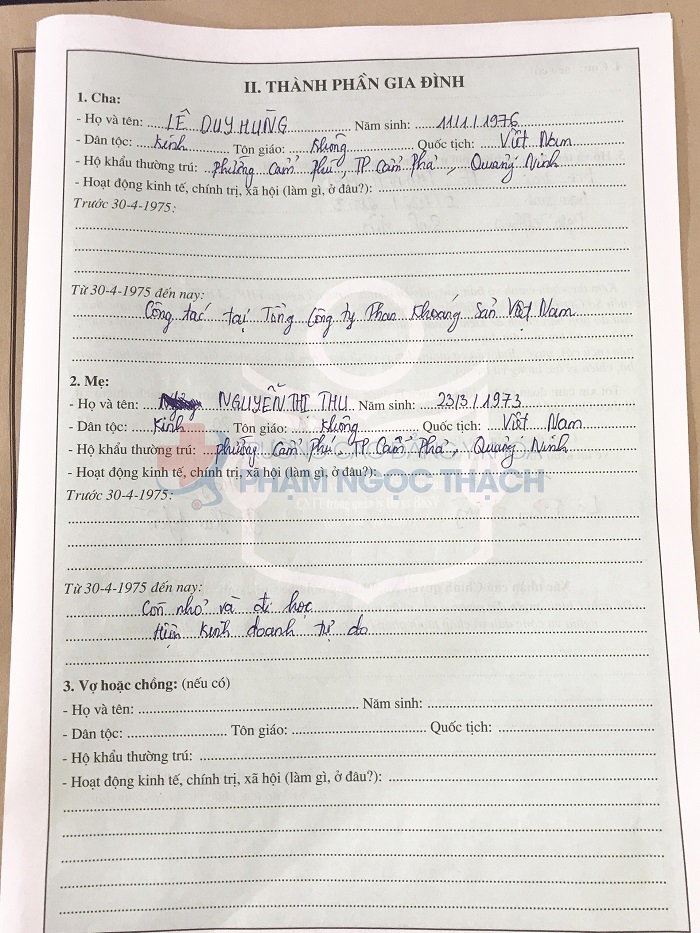 II. THÀNH PHẦN GIA ĐÌNH
1. Cha:
- Họ và tên: LÊ DUY HÙNG Năm sinh: 11/1/1976
- Dân tộc: Kinh Tôn giáo: Không Quốc tịch: Việt Nam
- Hộ khẩu thường trú: phường Cẩm Phú, TP Cẩm Phả, Quảng Ninh
- Hoạt động kinh tế, chính trị, xã hội (làm gì, ở đâu?):
Trước 30-4-1975:
Từ 30-4-1975 đến nay:
Công tác tại Tổng Công ty Than Khoáng Sản Việt Nam
2. Mẹ:
- Họ và tên: NGUYỄN THỊ THU Năm sinh: 23/3/1973
- Dân tộc: Kinh Tôn giáo: Không Quốc tịch: Việt Nam
- Hộ khẩu thường trú: phường Cẩm Phú, TP Cẩm Phả, Quảng Ninh
- Hoạt động kinh tế, chính trị, xã hội (làm gì, ở đâu?):
PHẠM NGỌC THẠCH
Trước 30-4-1975:
Từ 30-4-1975 đến nay:
Còn nhỏ và đi học
Hiện Kinh doanh tự do
3. Vợ hoặc chồng: (nếu có)
- Họ và tên: Năm sinh:
- Dân tộc: Tôn giáo: Quốc tịch:
- Hộ khẩu thường trú:
- Hoạt động kinh tế, chính trị, xã hội (làm gì, ở đâu?):